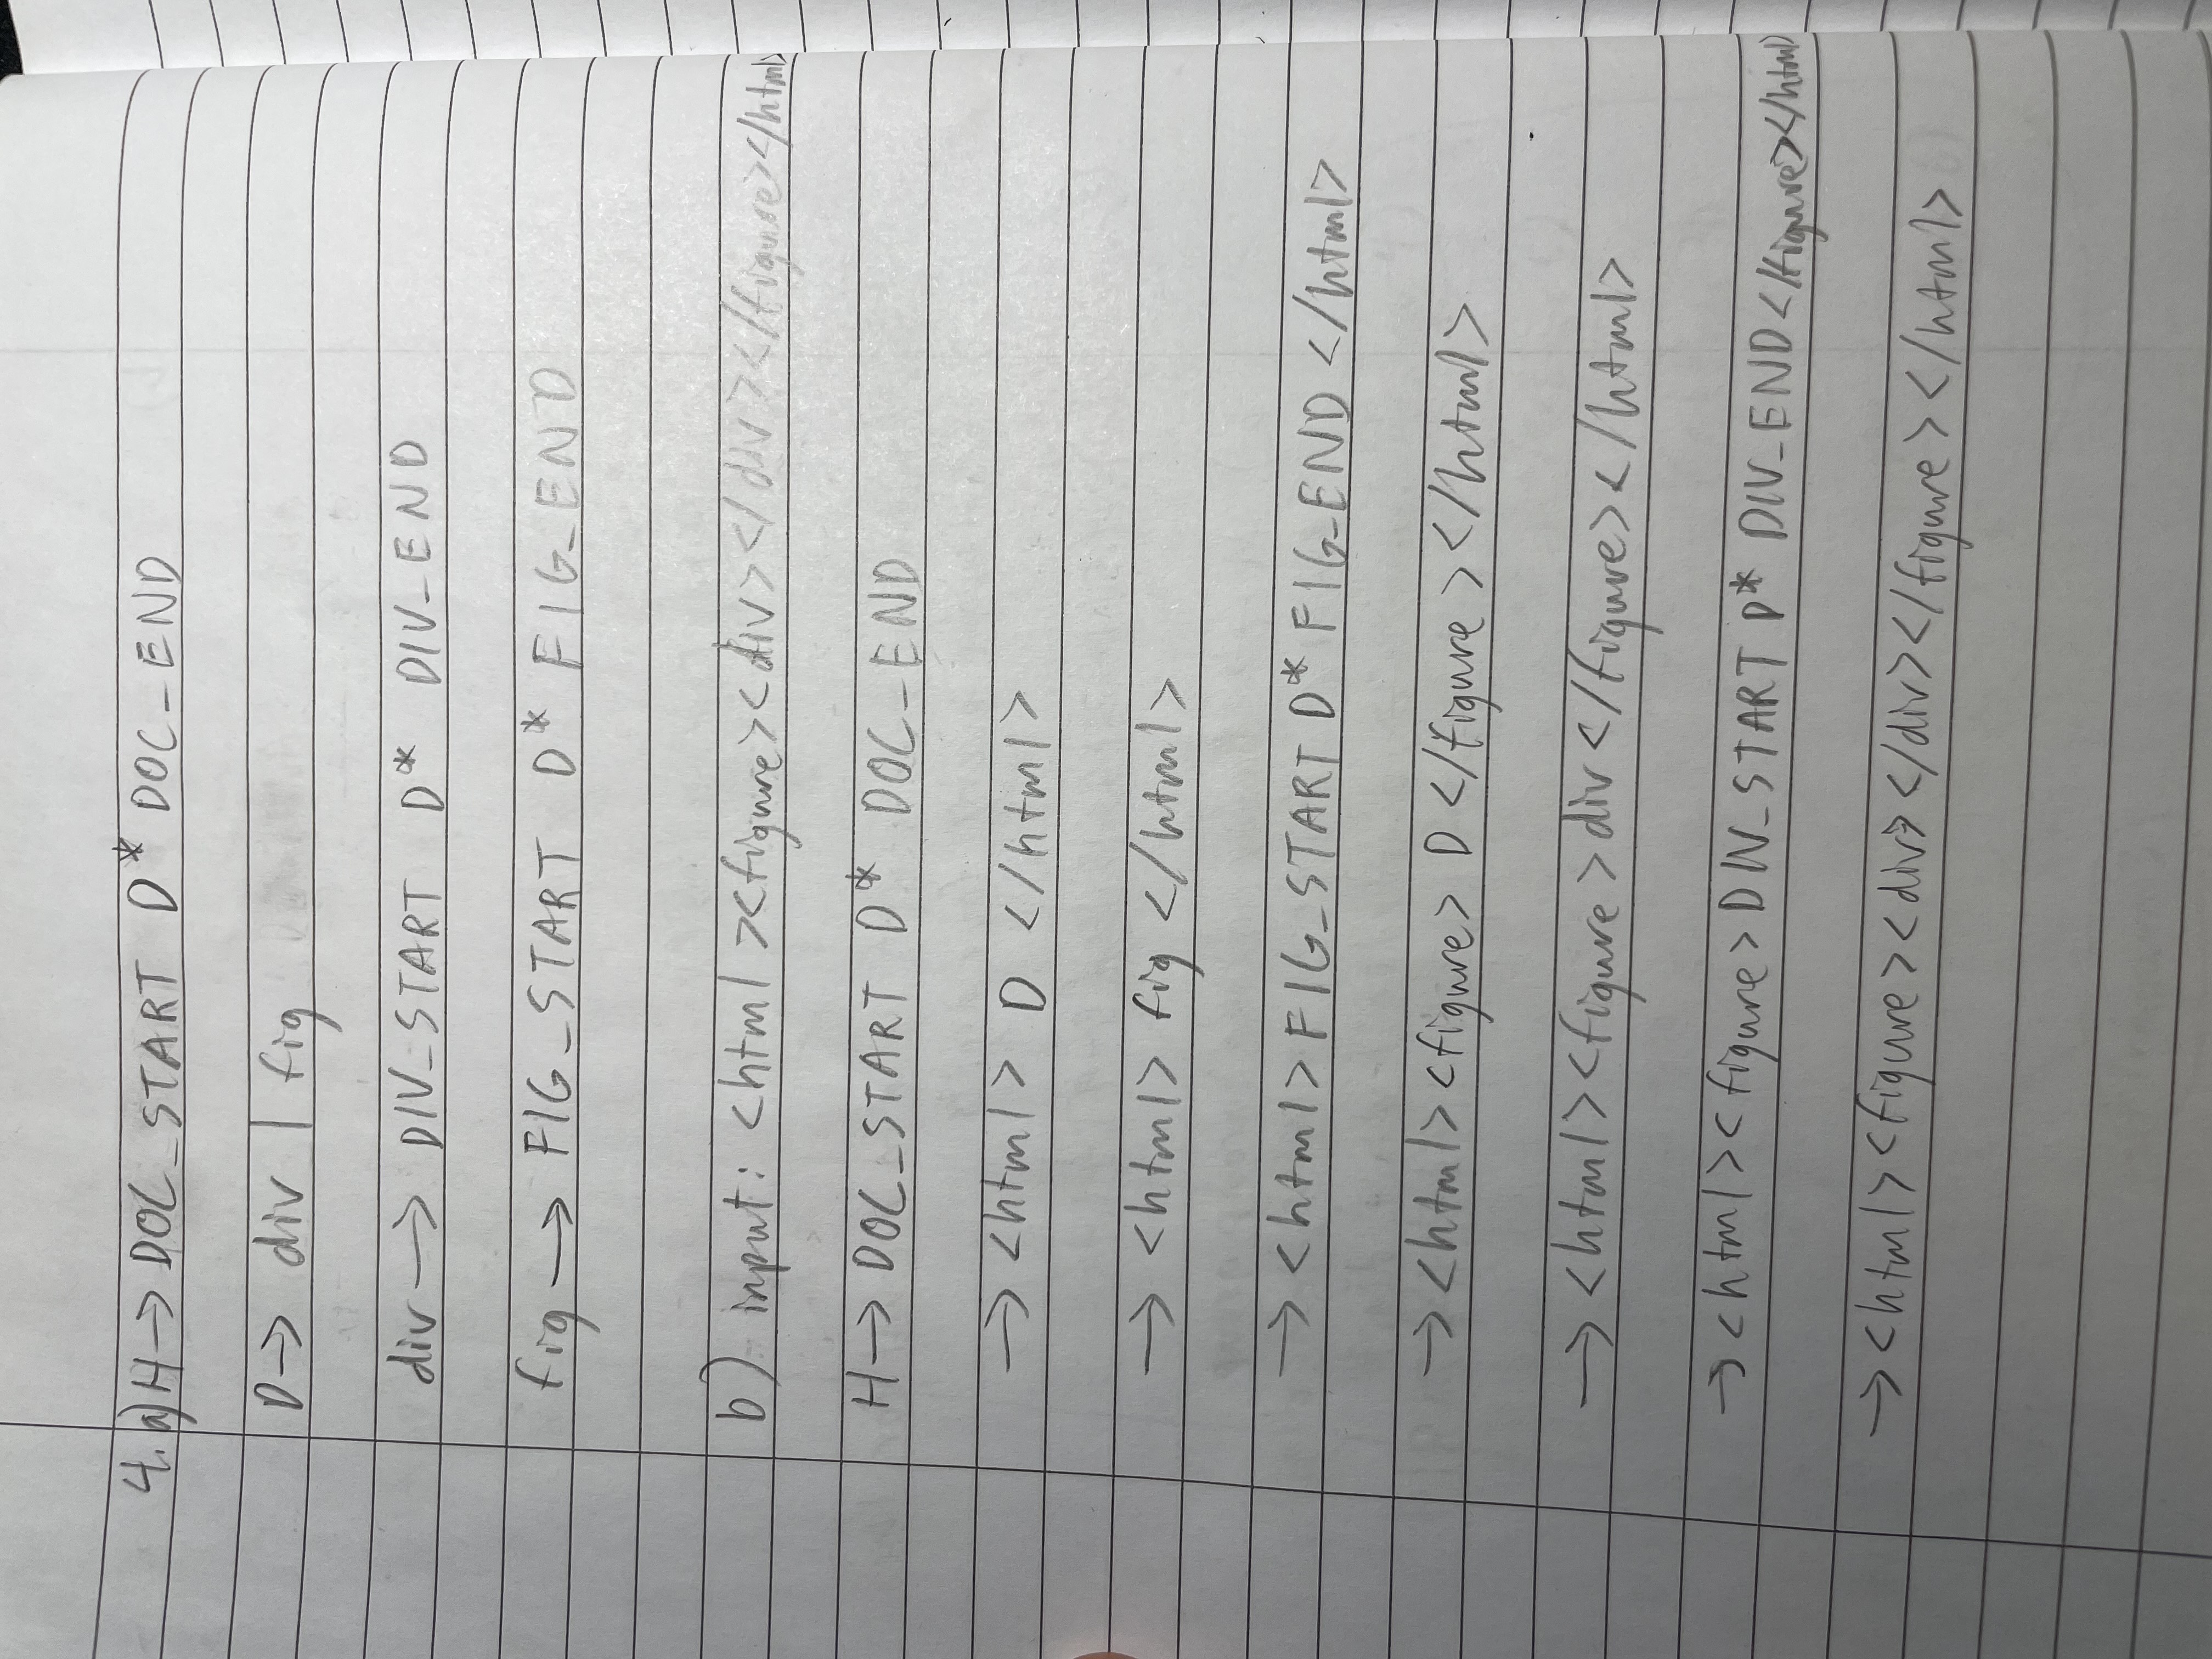 4. a) H → DOC_START D* DOC_END
D → div | fig
div → DIV_START D* DIV_END
fig → FIG_START D* FIG_END
b) input: <html><figure><div></div></figure></html>
H → DOC_START D* DOC_END
→ <html> D </html>
→ <html> fig </html>
→ <html> FIG_START D* FIG_END </html>
→ <html><figure> D </figure></html>
→ <html><figure> div </figure></html>
→ <html><figure> DIV_START D* DIV_END </figure></html>
→ <html><figure><div></div></figure></html>